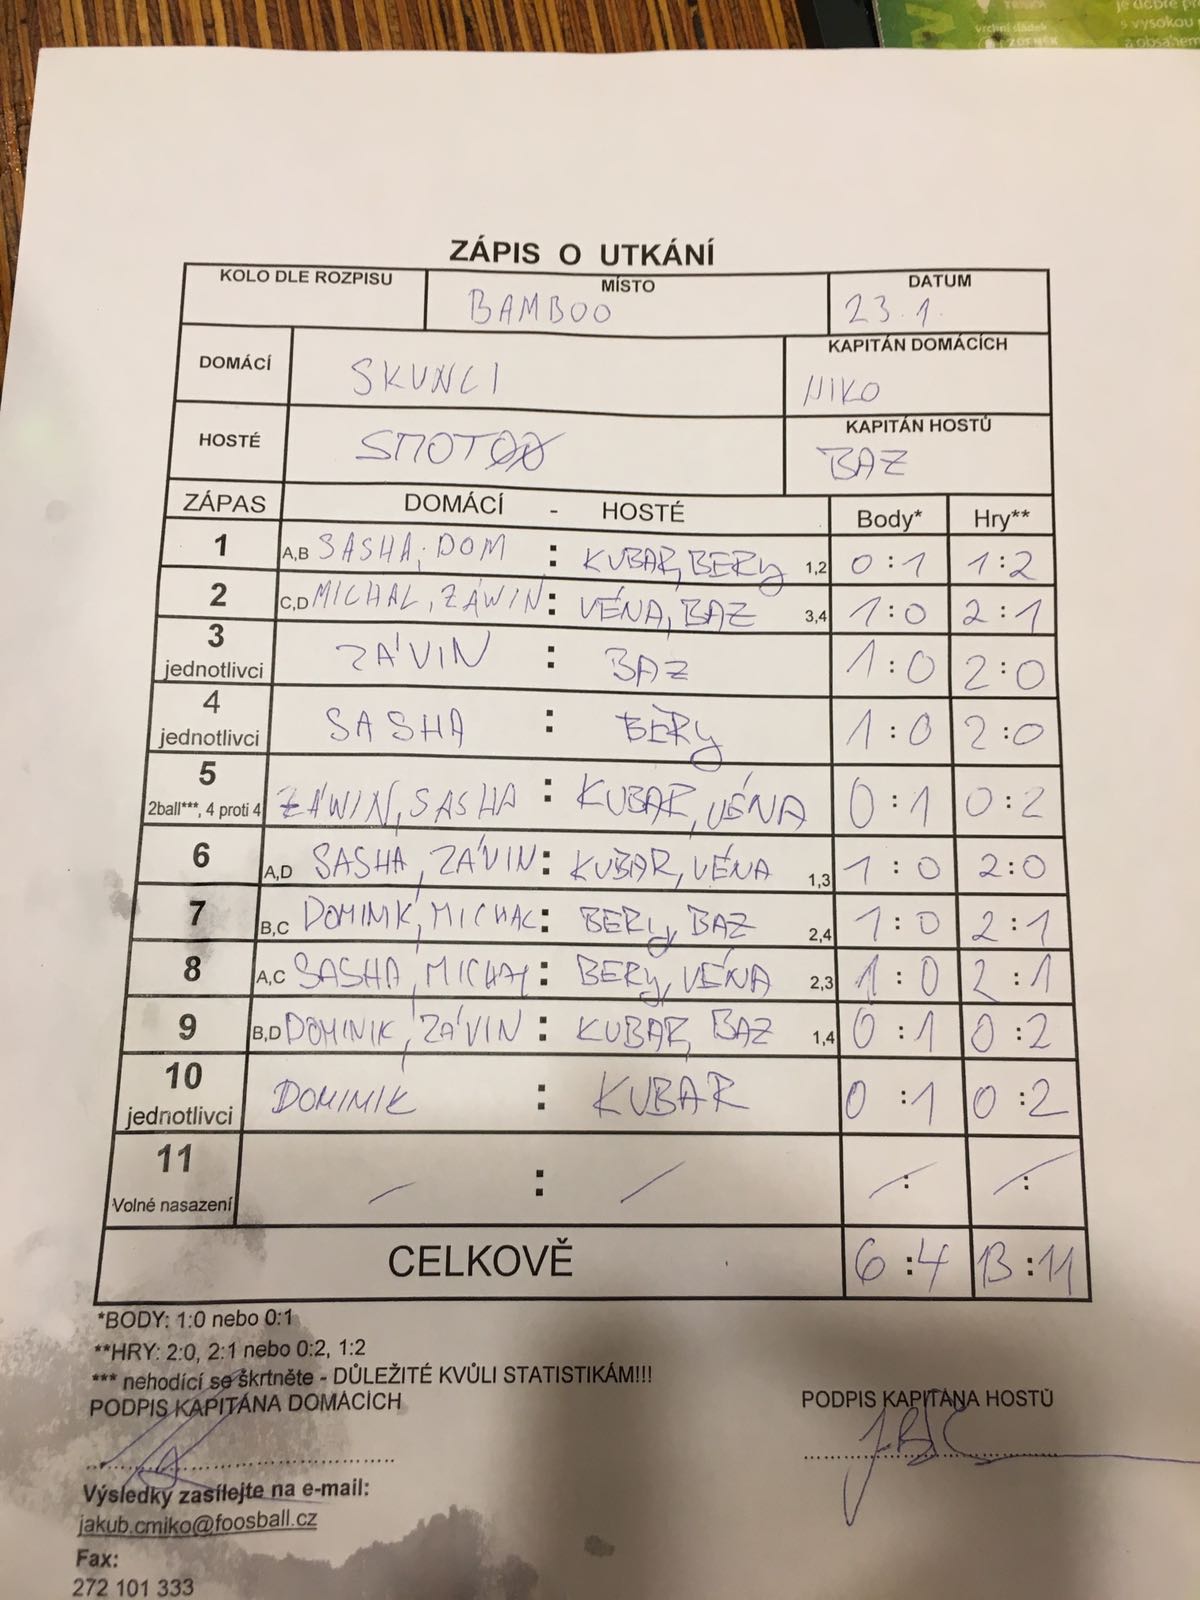 je dobře
vrchní sládek
s vysokou
ZDENĚK
a obsahem
ZÁPIS O UTKÁNÍ
KOLO DLE ROZPISU MÍSTO DATUM
BAMBOO 23.1.
DOMÁCÍ SKUNCI KAPITÁN DOMÁCÍCH
NIKO
HOSTÉ SMOTØØ KAPITÁN HOSTŮ
BAZ
ZÁPAS DOMÁCÍ - HOSTÉ Body* Hry**
1 A,B SASHA, DOM : KUBAR, BERY 1,2 0:1 1:2
2 C,D MICHAL, ZÁWIN : VÉNA, BAZ 3,4 1:0 2:1
3 jednotlivci ZÁVIN : BAZ 1:0 2:0
4 jednotlivci SASHA : BERY 1:0 2:0
5 2ball***, 4 proti 4 ZÁWIN, SASHA : KUBAR, VÉNA 0:1 0:2
6 A,D SASHA, ZÁVIN : KUBAR, VÉNA 1,3 1:0 2:0
7 B,C DOMINIK, MICHAL : BERY, BAZ 2,4 1:0 2:1
8 A,C SASHA, MICHAL : BERY, VÉNA 2,3 1:0 2:1
9 B,D DOMINIK, ZÁVIN : KUBAR, BAZ 1,4 0:1 0:2
10 jednotlivci DOMINIK : KUBAR 0:1 0:2
11 Volné nasazení / : / /: /:
CELKOVĚ 6:4 13:11
*BODY: 1:0 nebo 0:1
**HRY: 2:0, 2:1 nebo 0:2, 1:2
*** nehodící se škrtněte - DŮLEŽITÉ KVŮLI STATISTIKÁM!!!
PODPIS KAPITÁNA DOMÁCÍCH PODPIS KAPITÁNA HOSTŮ
Výsledky zasílejte na e-mail:
jakub.cmiko@foosball.cz
Fax:
272 101 333